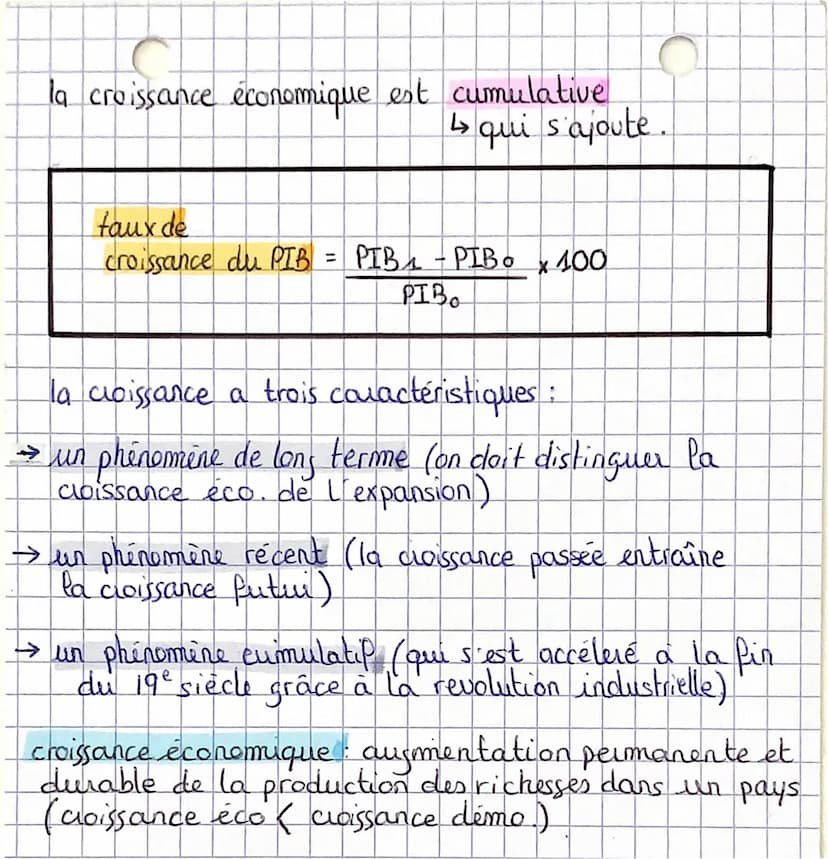 la croissance économique est cumulative
↳ qui s'ajoute.
taux de
croissance du PIB = PIB1 - PIB0 x 100
PIB0
la croissance a trois caractéristiques :
→ un phénomène de long terme (on doit distinguer la
croissance éco. de l'expansion)
→ un phénomène récent (la croissance passée entraîne
la croissance futur)
→ un phénomène cumulatif (qui s'est accéléré à la fin
du 19e siècle grâce à la revolution industrielle)
croissance économique : augmentation permanente et
durable de la production des richesses dans un pays
(croissance éco < croissance démo.)